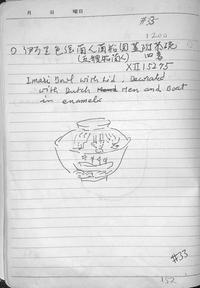 月 日 曜日
#33
1200
伊万里色絵蘭人蘭船図蓋附茶碗
(五艘船蘭人)
XII 15275
Imari Bowl with Lid, Decorated
with Dutch Men and Boat
in enamels
#33
152